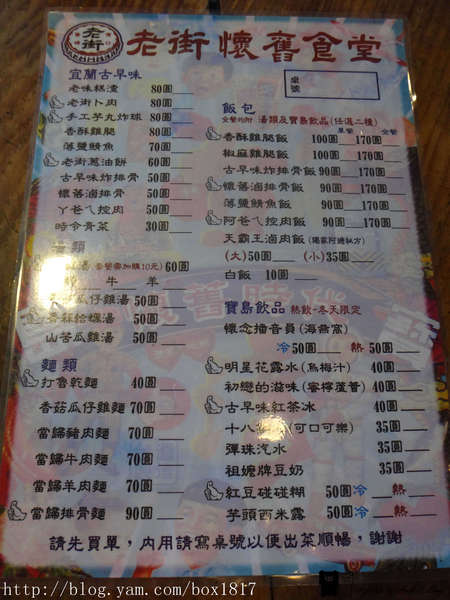 老街
老街懷舊食堂
桌號
宜蘭古早味
老味糕渣 80圓
老街卜肉 80圓
手工芋丸炸球 80圓
香酥雞腿 80圓
薄鹽鯖魚 70圓
老街蔥油餅 60圓
古早味炸排骨 50圓
懷舊滷排骨 50圓
丫爸ㄟ控肉 50圓
時令青菜 30圓
湯類
湯 套餐需加購10元) 60圓
牛 羊
瓜仔雞湯 50圓
蛤蠣湯 50圓
山苦瓜雞湯 50圓
麵類
打魯乾麵 40圓
香菇瓜仔雞麵 70圓
當歸豬肉麵 70圓
當歸牛肉麵 70圓
當歸羊肉麵 70圓
當歸排骨麵 90圓
飯包
全餐均附 湯類及寶島飲品(任選二種)
單餐 全餐
香酥雞腿飯 100圓 170圓
椒麻雞腿飯 100圓 170圓
古早味炸排骨飯 90圓 170圓
懷舊滷排骨飯 90圓 170圓
薄鹽鯖魚飯 90圓 170圓
阿爸ㄟ控肉飯 90圓 170圓
天霸王滷肉飯 (獨家阿嬤秘方)
(大) 50圓 (小) 35圓
白飯 10圓
寶島飲品 熱飲·冬天限定
懷念播音員(海燕窩)
冷50圓 熱50圓
明星花露水(烏梅汁) 40圓
初戀的滋味(蜜檸蘆薈) 40圓
古早味紅茶冰 40圓
十八 (可口可樂) 35圓
彈珠汽水 35圓
祖嬤牌豆奶 35圓
紅豆碰碰糊 50圓冷 熱
芋頭西米露 50圓冷 熱
請先買單，內用請寫桌號以便出菜順暢，謝謝
http://blog.yam.com/box1817